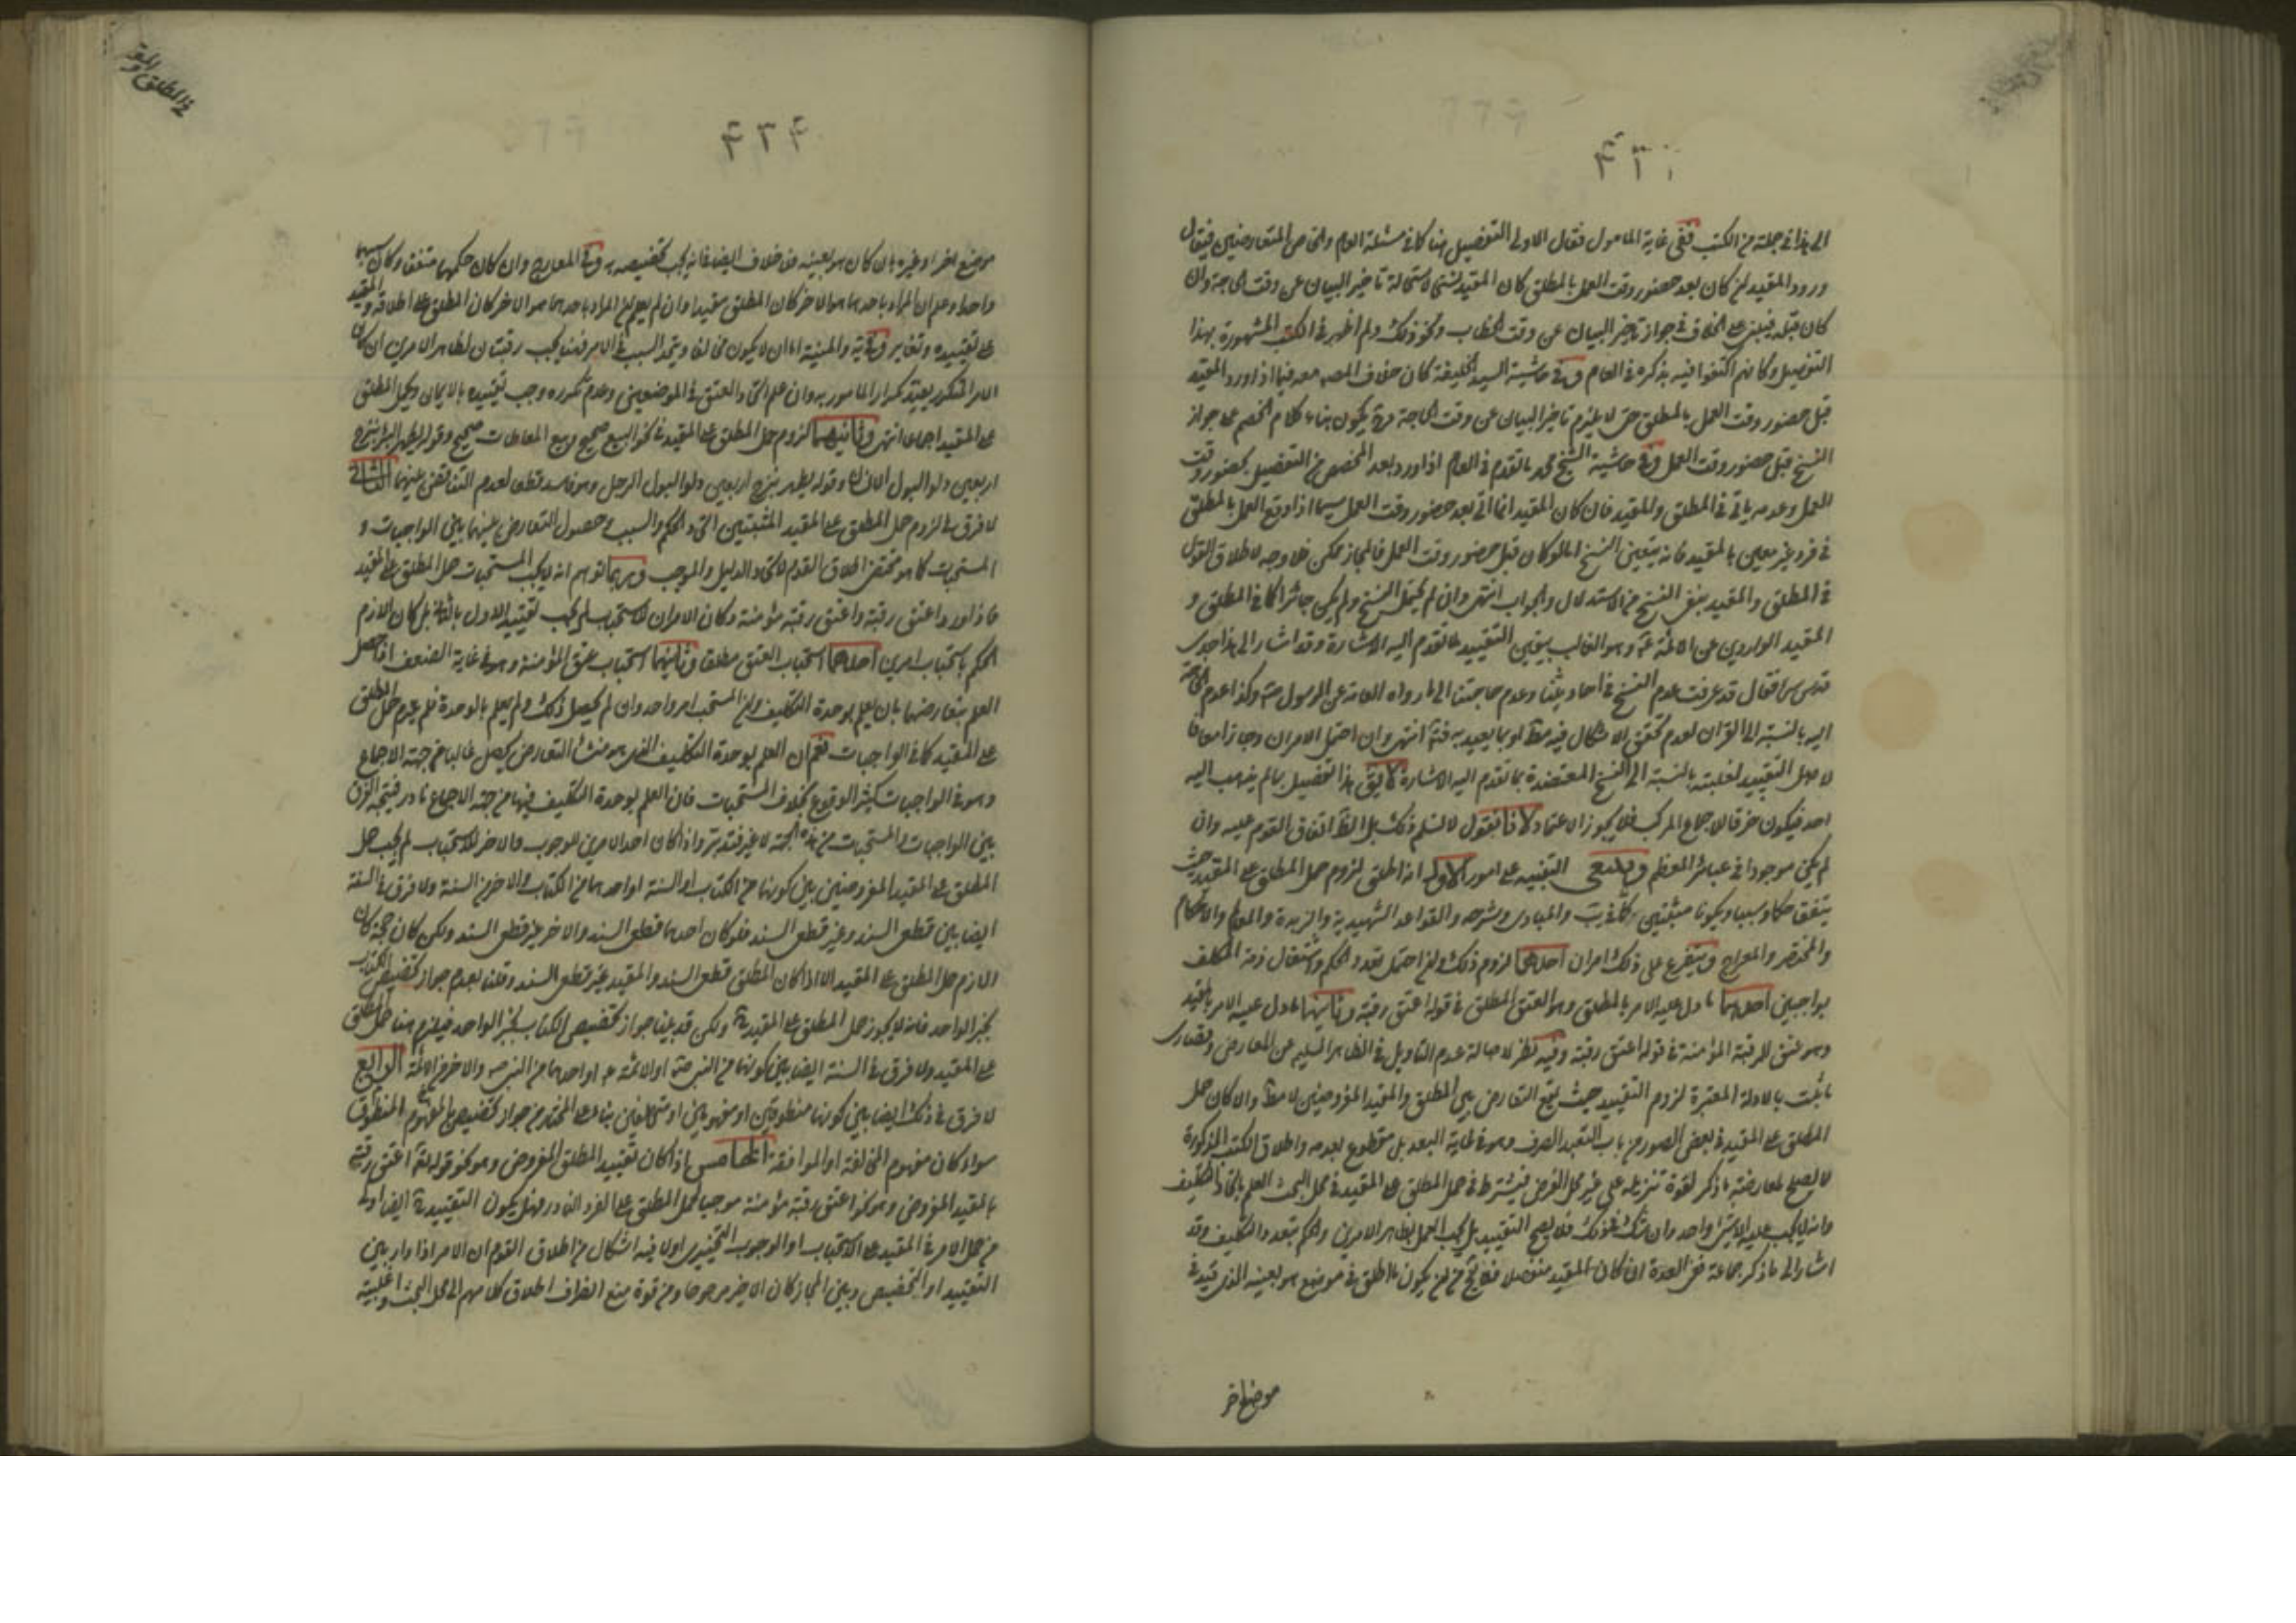 الى هذا في جملة من الكتب ففي غاية المامول فقال الاولى التفصيل هنا كما في مسئلة العام والخاص المتعارضين فيقال
ورود المقيد ان كان بعد حضور وقت العمل بالمطلق كان المقيد لاستحالة تاخير البيان عن وقت الحاجة وان
كان قبله فيبنى على الخلاف في جواز تاخير البيان عن وقت الخطاب ونحو ذلك ولم اظهر في الكتب المشهورة بهذا
التفصيل وكانهم اكتفوا فيه بذكره في العام وفي حاشية السيد الخليفة كان خلاف المصـ معه فيما اذا ورد المقيد
قبل حضور وقت العمل بالمطلق حتى لا يلزم تاخير البيان عن وقت الحاجة يكون بناء كلام الخصم على جواز
النسخ قبل حضور وقت العمل وفي حاشية الشيخ محمد ما تقدم في العام اذا ورد بعد الخصوص من التفصيل بحضور وقت
العمل وعدمه ياتي في المطلق والمقيد فان كان المقيد انما اتى بعد حضور وقت العمل سيما اذا وقع العمل بالمطلق
في فرد غير معين بالمقيد فانه يتعين النسخ اما لو كان قبل حضور وقت العمل فالمجاز ممكن فلا وجه لاطلاق القول
في المطلق والمقيد بنفي النسخ من الاستدلال والجواب انتهى وان لم يحتمل النسخ ولم يكن جائزا كما في المطلق و
المقيد الواردين عن الائمة ع وهو الغالب يتعين التقييد لما تقدم اليه الاشارة وقد اشار الى هذا جدي
قدس سره فقال قد عرفت عدم النسخ في احاديثنا وعدم حاجتنا الى ما رواه العامة عن الرسول ص وكذا عدم الحاجة
اليه بالنسبة الى القران لعدم تحقق الاشكال فيه مما يعبد به فتة انتهى وان احتمل الامران وجاز معا فا
لاصل التقييد لغلبته بالنسبة الى النسخ المعتضدة بما تقدم اليه الاشارة لا يق هذا تفصيل بما لم يذهب اليه
احد فيكون خرقا للاجماع المركب فلا يجوز الاعتماد لانا نقول لا نسلم ذلك بل الظ اتفاق القوم عليه وان
لم يكن موجودا في عبائر المعظم وينبغي التنبيه على امور الاول انه اطلق لزوم حمل المطلق على المقيد حيث
يتفق حكما وسببا ويكونا مثبتين كما في يب والمبادي وشرحه والقواعد الشهيدية والزبدة والمع والاحكام
والمختصر والمعراج ويتفرع على ذلك امران احدهما لزوم ذلك وان احتمل تعدد الحكم واشتغال ذمة المكلف
بواجبين احدهما ما دل عليه الامر بالمطلق وهو العتق المطلق في قوله اعتق رقبة وثانيهما ما دل عليه الامر بالمقيد
وهو عتق الرقبة المؤمنة في قوله اعتق رقبة وفيه نظر لاصالة عدم التاويل في الظاهر السليم عن المعارض وقصارى
ما ثبت بالادلة المعتبرة لزوم التقييد حيث يقع التعارض بين المطلق والمقيد المفروضين لا مط والا كان حمل
المطلق على المقيد في بعض الصور من باب التعبد الصرف وهو في غاية البعد بل مقطوع بعدمه واطلاق الكتب المذكورة
لا يصلح لمعارضة ما ذكر لقوة تنزيله على غير محل الفرض فيشترط في حمل المطلق على المقيد في محل البحث العلم باتحاد التكليف
وانه لا يجب عليه الا شيئ واحد وان شك في ذلك فلا يصح التقييد بل يجب العمل بظاهر الامرين والحكم بتعدد التكليف وقد
اشار الى ما ذكر جماعة ففي العدة ان كان المقيد منفصلا فلا يخ من ان يكون ما اطلق في موضع هو بعينه الذي قيد في
موضع اخر
في المطلق والمقـ
موضع اخر او غيره بان كان هو بعينه فلا خلاف ايضا فانه يجب تخصيصه به وفي المعارج وان كان حكمهما متفقا وكان سببهما
واحدا وعلم ان المراد باحدهما هو الاخر كان المطلق مقيدا وان لم يعلم ان المراد باحدهما هو الاخر كان المطلق على اطلاقه والمقيد
على تقييده وتغاير وفي يه والمنية اما ان لا يكون مخالفا ويتحد السبب في الامر فهنا يجب رقبتان لظاهر الامرين ان كان
الامر المتكرر يفيد تكرار المامور به وان علم اتحاد العتق في الموضعين وعدم تكرره وجب تقييده بالايمان وحمل المطلق
على المقيد اجماعا انتهى وثانيهما لزوم حمل المطلق على المقيد في نحو البيع صحيح وبيع المعاطات صحيح وقوله يطهر البئر بنزح
اربعين دلوا لبول الانسان وقوله يطهر بنزح اربعين دلوا لبول الرجل وهو فاسد قطعا لعدم التناقض بينهما الثاني
لا فرق في لزوم حمل المطلق على المقيد المثبتين المتحدي الحكم والسبب وحصول التعارض بينهما بين الواجبات و
المستحبات كما هو مقتضى اطلاق القوم لاتحاد الدليل والموجب وربما توهم انه لا يجب في المستحبات حمل المطلق على المقيد
فاذا ورد اعتق رقبة واعتق رقبة مؤمنة وكان الامران للاستحباب لم يجب تقييد الاول بالثاني بل كان اللازم
الحكم باستحباب امرين احدهما استحباب العتق مطلقا وثانيهما استحباب عتق المؤمنة وهو في غاية الضعف اذا حصل
العلم بتعارضهما بان يعلم بوحدة التكليف وان المستحب امر واحد وان لم يحصل ذلك ولم يعلم بالوحدة فلم يلزم حمل المطلق
على المقيد كما في الواجبات نعم ان العلم بوحدة التكليف الذي هو منشأ التعارض يحصل غالبا من جهة الاجماع
وهو في الواجبات كثير الوقوع بخلاف المستحبات فان العلم بوحدة التكليف فيها من جهة الاجماع نادر فيتجه الفرق
بين الواجبات والمستحبات من هذه الجهة لا غير فتدبر واذا كان احد الامرين للوجوب والاخر للاستحباب لم يجب حمل
المطلق على المقيد المفروضين بين كونهما من الكتاب او السنة او احدهما من الكتاب والاخر من السنة ولا فرق في السنة
ايضا بين قطعي السند وغير قطعي السند فلو كان احدهما قطعي السند والاخر غير قطعي السند ولكن كان حجة كان
اللازم حمل المطلق على المقيد الا اذا كان المطلق قطعي السند والمقيد غير قطعي السند وقلنا بعدم جواز تخصيص الكتاب
بخبر الواحد فانه لا يجوز حمل المطلق على المقيد ح ولكن قد بينا جواز تخصيص الكتاب بخبر الواحد فيلزم هنا حمل المطلق
على المقيد ولا فرق في السنة ايضا بين كونهما من النبي ص او الائمة ع او احدهما من النبي ص والاخر من الائمة الرابع
لا فرق في ذلك ايضا بين كونهما منطوقين او مفهومين او مختلفين بناء على المختار من جواز تخصيص المفهوم المنطوق
سواء كان مفهوم المخالفة او الموافقة الخامس اذا كان تقييد المطلق المفروض وهو نحو قوله اعتق رقبة
بالمقيد المفروض وهو نحو اعتق رقبة مؤمنة موجبا لحمل المطلق على الفرد النادر فهل يكون التقييد ح ايضا اولى
من حمل الامر في المقيد على الاستحباب او الوجوب التخييري او لا فيه اشكال من اطلاق القوم ان الامر اذا دار بين
التقييد او التخصيص وبين المجاز كان الاخير مرجوحا ومن قوة منع انصراف اطلاق كلامهم الى محل البحث واغلبية